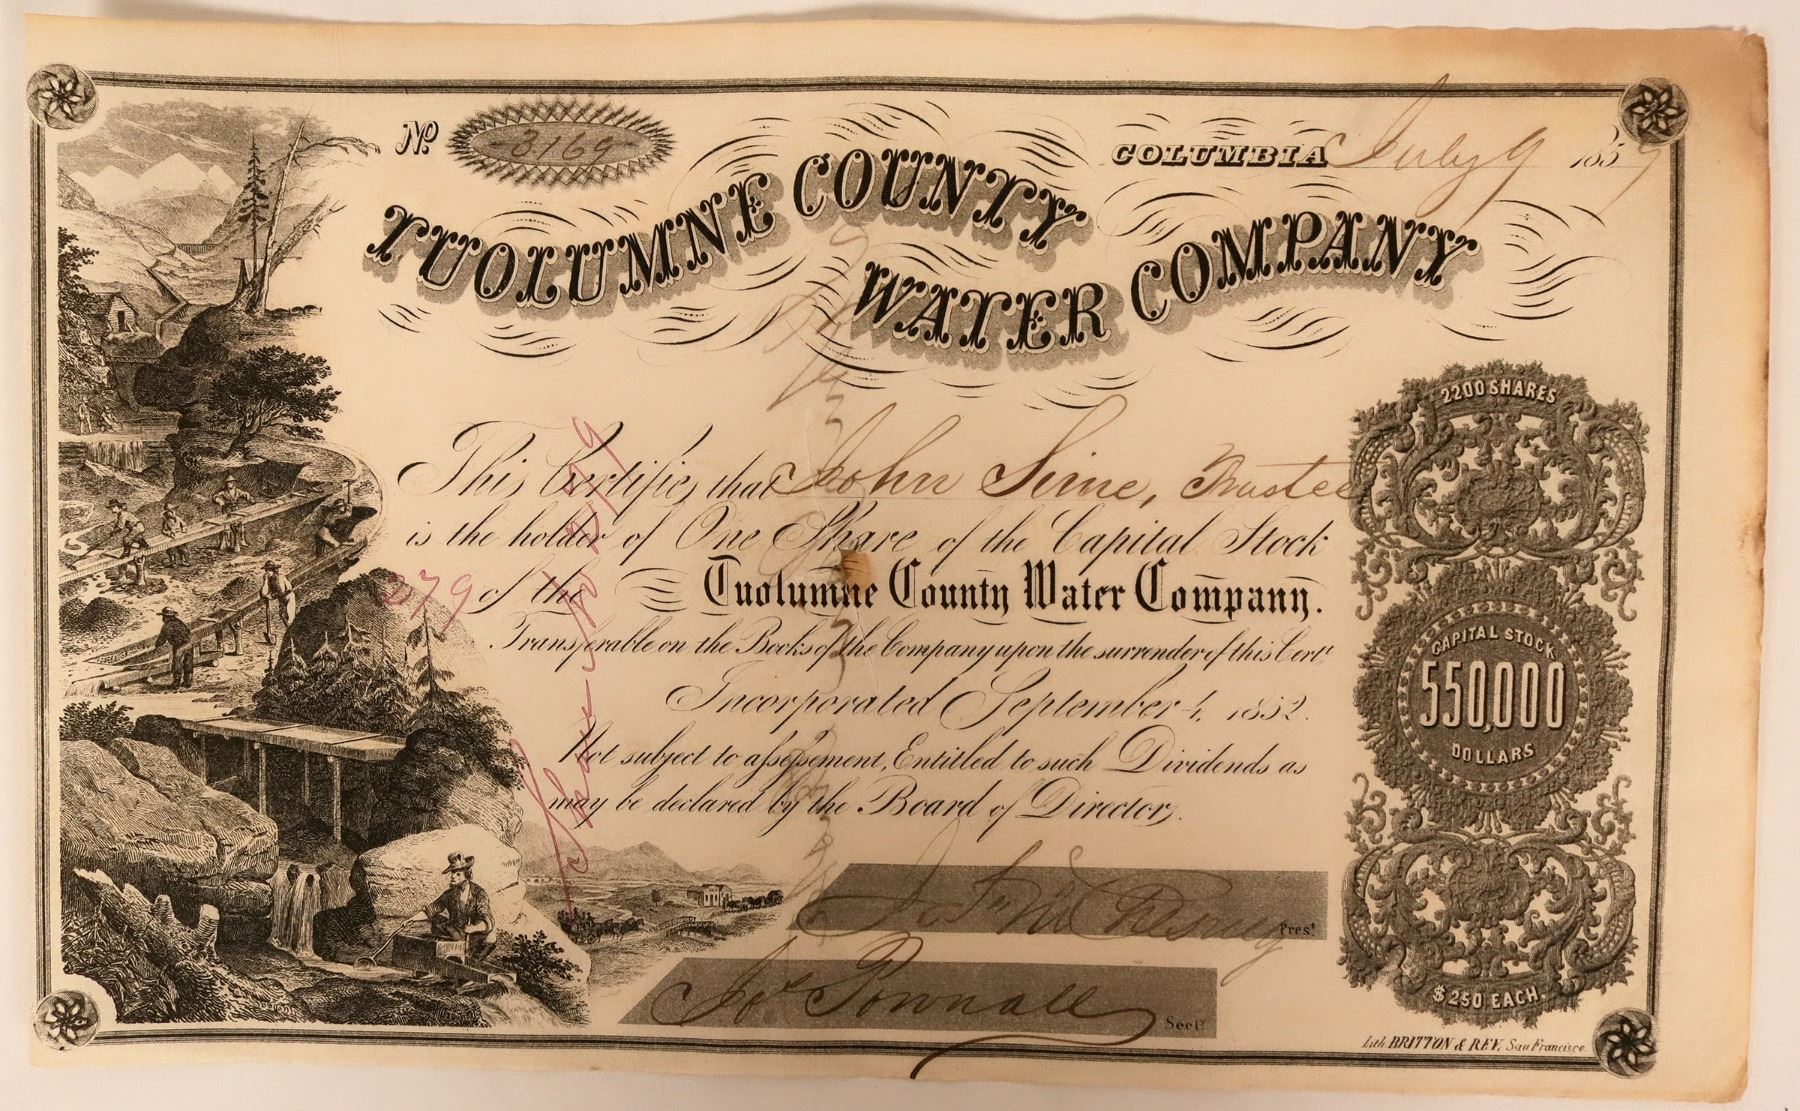 No. 3169
COLUMBIA July 9 1859
TUOLUMNE COUNTY
WATER COMPANY
This Certifies that John Sime, Trustee
is the holder of One Share of the Capital Stock
of the Tuolumne County Water Company.
Transferable on the Books of the Company upon the surrender of this Certe
Incorporated September 4, 1852.
Not subject to assessment, Entitled to such Dividends as
may be declared by the Board of Directors.
279
2200 SHARES
CAPITAL STOCK
550,000
DOLLARS
$250 EACH.
Prest
Jos Pownall
Secty
Lith BRITTON & REY, San Francisco